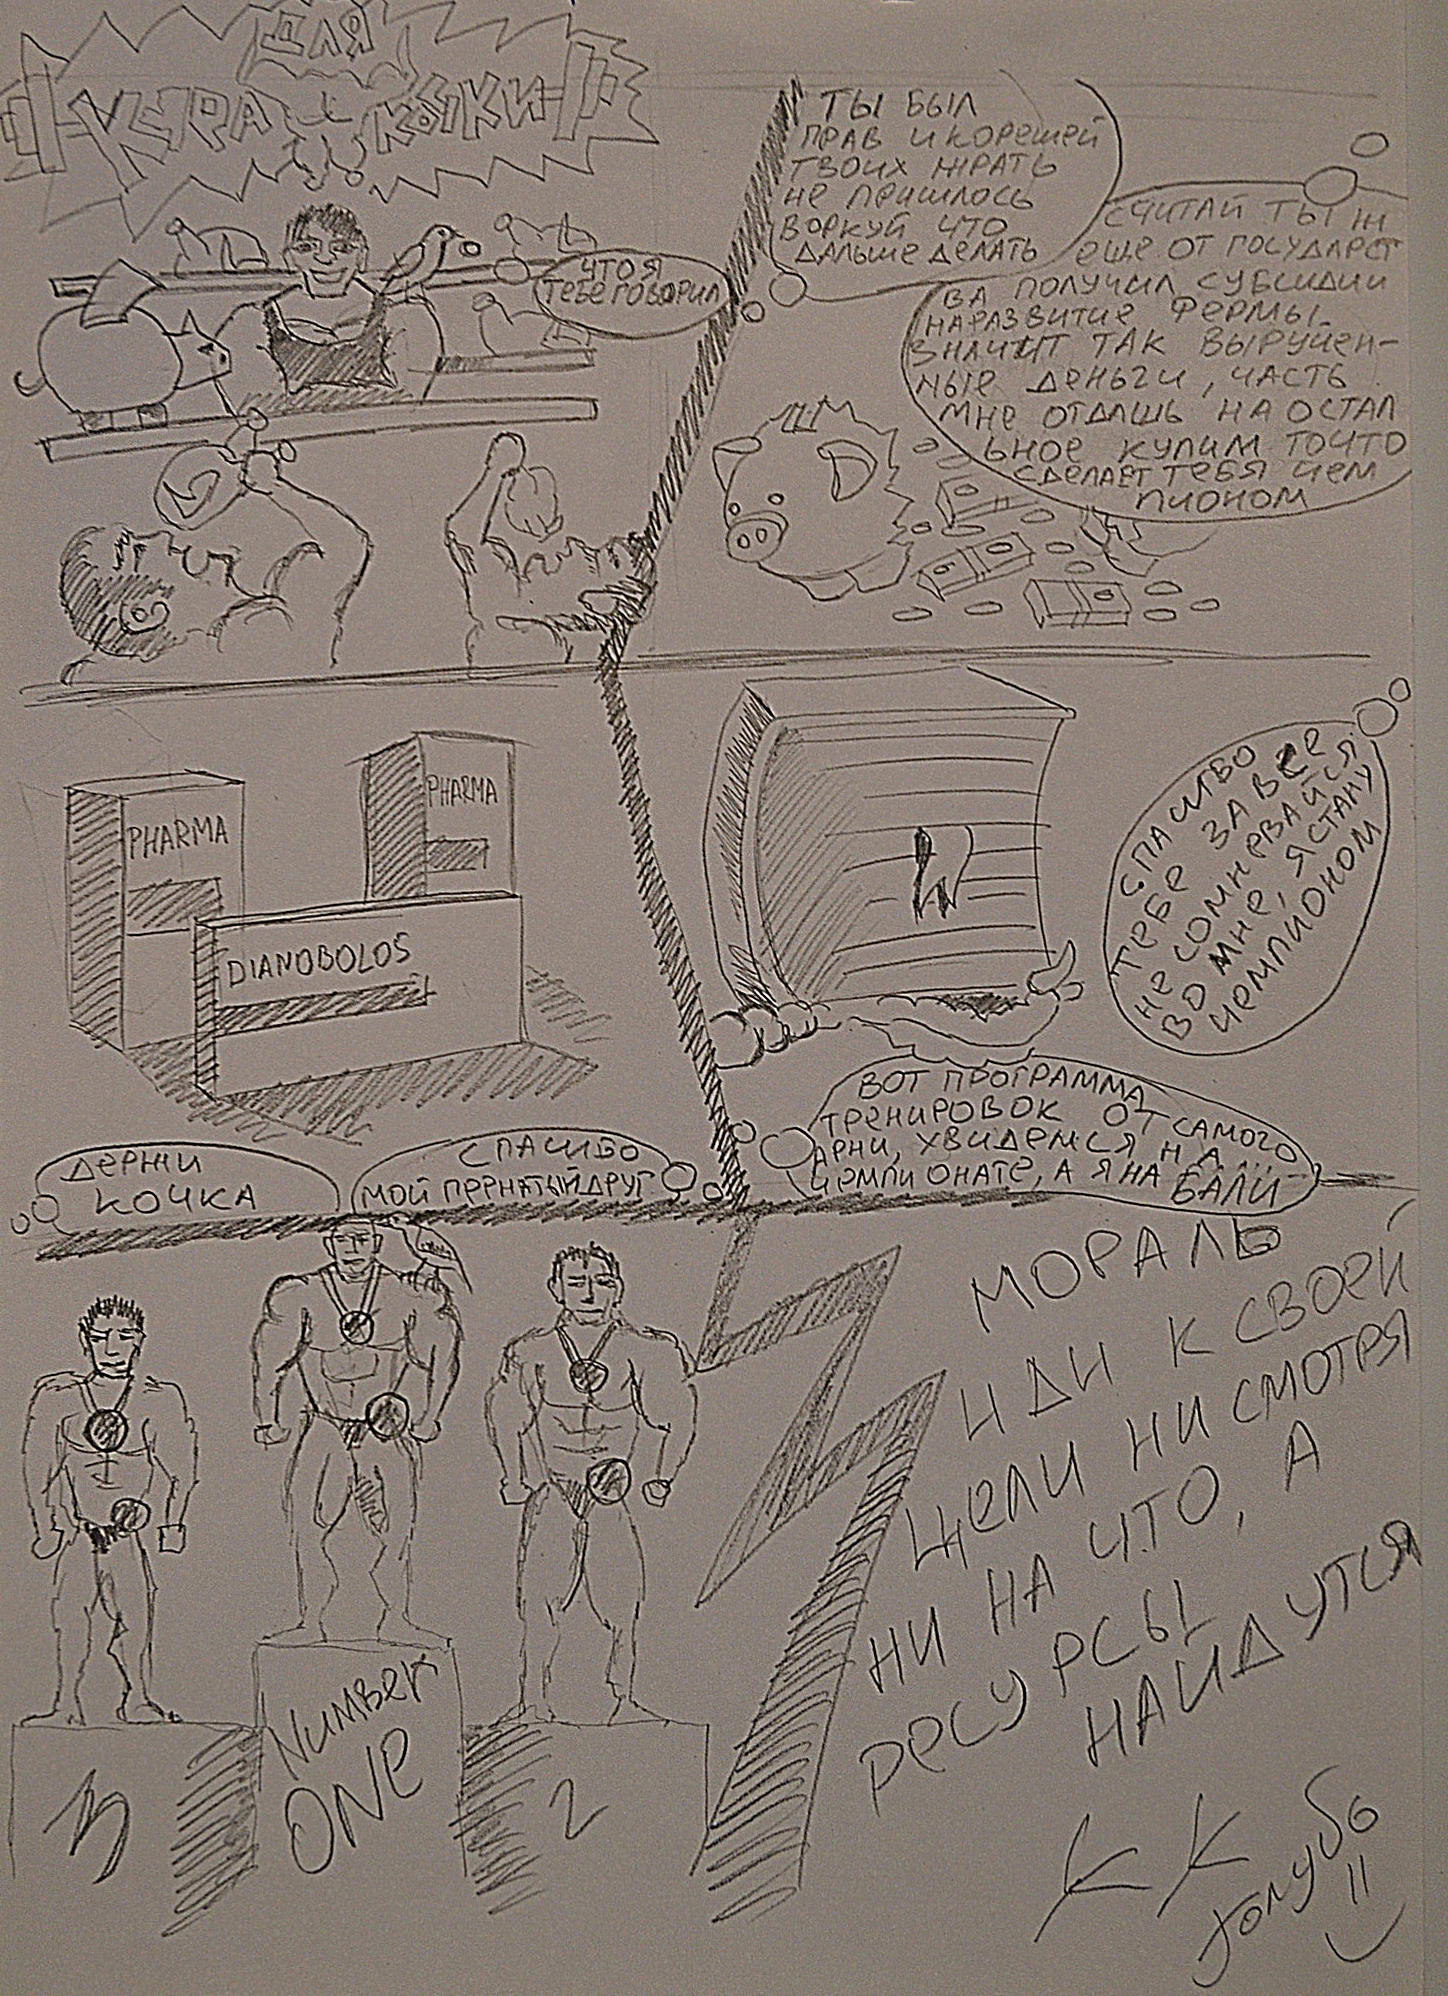 ДЛЯ
КУРА КЫКИ
ЧТО Я
ТЕБЕ ГОВОРИЛ
ТЫ БЫЛ
ПРАВ И КОРЕШЕЙ
ТВОИХ ЖРАТЬ
НЕ ПРИШЛОСЬ
ВОРКУЙ ЧТО
ДАЛЬШЕ ДЕЛАТЬ
СЧИТАЙ ТЫ Ж
ЕЩЕ ОТ ГОСУДАРСТ
ВА ПОЛУЧИЛ СУБСИДИИ
НА РАЗВИТИЕ ФЕРМЫ
ЗНАЧИТ ТАК ВЫРУЧЕН-
НЫЕ ДЕНЬГИ, ЧАСТЬ
МНЕ ОТДАШЬ НА ОСТАЛ
ЬНОЕ КУПИМ ТО ЧТО
СДЕЛАЕТ ТЕБЯ ЧЕМ
ПИОНОМ
PHARMA
PHARMA
DIANOBOLOS
СПАСИБО
ТЕБЕ ЗА ВСЕ
НЕ СОМНЕВАЙСЯ
ВО МНЕ, Я СТАНУ
ЧЕМПИОНОМ
ВОТ ПРОГРАММА
ТРЕНИРОВОК ОТ САМОГО
АРНИ, УВИДЕМСЯ НА
ЧЕМПИОНАТЕ, А Я НА БАЛИ
ДЕРЖИ
КОЧКА
СПАСИБО
МОЙ ПЕРНАТЫЙ ДРУГ
3
NUMBER
ONE
2
МОРАЛЬ
ИДИ К СВОЕЙ
ЦЕЛИ НИ СМОТРЯ
НИ НА ЧТО, А
РЕСУРСЫ
НАЙДУТСЯ
КК